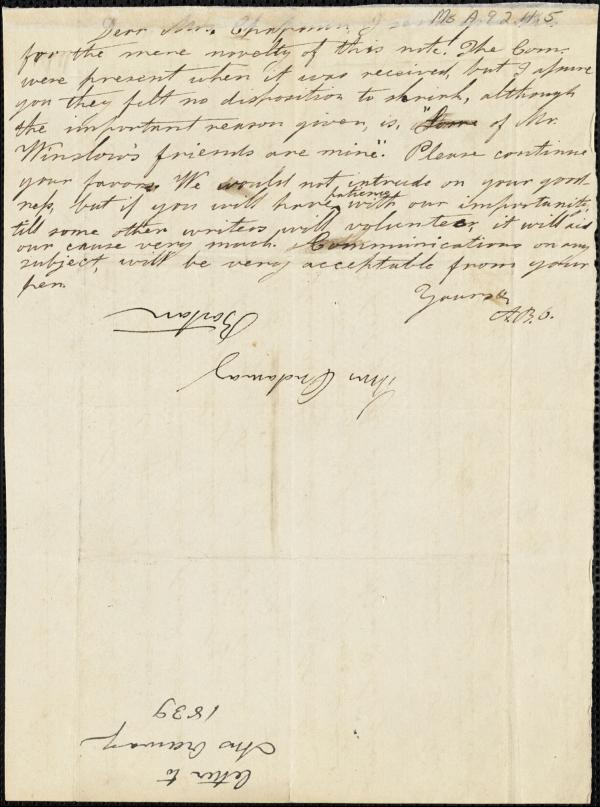 Ms. A.9.2.11.5
Dear Mrs. Chapman, I
for the mere novelty of this note. The Com.
were present when it was received, but I assure
you they felt no disposition to shrink, although
the important reason given, is, "Some of Mr.
Winslow's friends are mine". Please continue
your favors. We would not intrude on your good-
ness, but if you will have patience with our importunity,
till some other writers will volunteer, it will aid
our cause very much. Communications on any
subject, will be very acceptable from your
pen.
Yours
A.B.O.
Boston
Ann Ordaway
Letter to
Mrs
1839